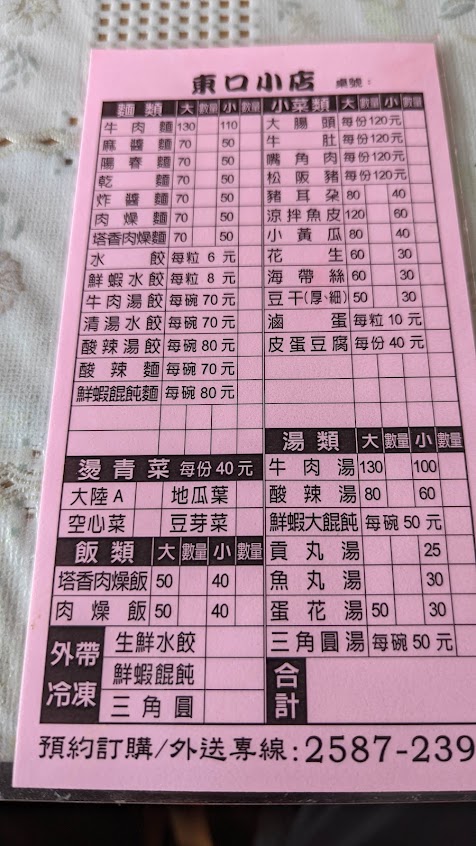 東口小店 桌號：
麵類 大 數量 小 數量
牛肉麵 130 110
麻醬麵 70 50
陽春麵 70 50
乾麵 70 50
炸醬麵 70 50
肉燥麵 70 50
塔香肉燥麵 70 50
水餃 每粒 6 元
鮮蝦水餃 每粒 8 元
牛肉湯餃 每碗 70 元
清湯水餃 每碗 70 元
酸辣湯餃 每碗 80 元
酸辣麵 每碗 70 元
鮮蝦餛飩麵 每碗 80 元
燙青菜 每份 40 元
大陸A 地瓜葉
空心菜 豆芽菜
飯類 大 數量 小 數量
塔香肉燥飯 50 40
肉燥飯 50 40
外帶冷凍
生鮮水餃
鮮蝦餛飩
三角圓
小菜類 大 數量 小 數量
大腸頭 每份120元
牛肚 每份120元
嘴角肉 每份120元
松阪豬 每份120元
豬耳朵 80 40
涼拌魚皮 120 60
小黃瓜 80 40
花生 60 30
海帶絲 60 30
豆干(厚、細) 50 30
滷蛋 每粒 10 元
皮蛋豆腐 每份 40 元
湯類 大 數量 小 數量
牛肉湯 130 100
酸辣湯 80 60
鮮蝦大餛飩 每碗 50 元
貢丸湯 25
魚丸湯 30
蛋花湯 50 30
三角圓湯 每碗 50 元
合計
預約訂購/外送專線:2587-239